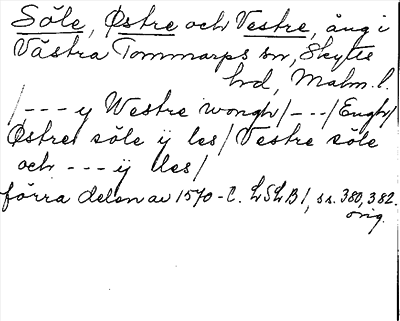 Söle, Østre och Vestre, äng i
Västra Tommarps sn, Skytts
hd, Malm. l.
/--- y Westre wongh/---/Engh/
Østre söle ÿ les/Vestre söle
och --- ÿ lles/
förra delen av 1570-t. LSLB1, s. 380, 382.
orig.